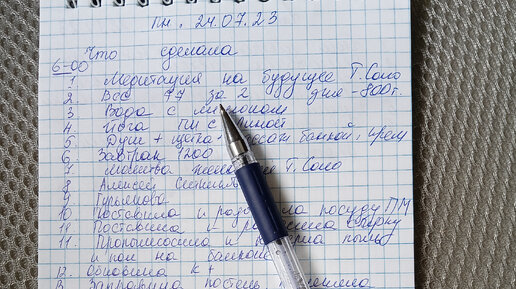 пн. 24.07.23
Что сделала
6-00
1. Медитация на будущее Т. Соло
2. Вес 77 за 2 дня -800г.
3. Вода с лимоном
4. Йога ПМ с
5. Душ + щётка банкой, крем
6. Завтрак 1200
7. Молитва Т. Соло
8. Алексей
9. Гурьянова
10. Поставила и посуду ПМ
11. Поставила и стирку
11. Пропылесосила и пыль
и пол на балконе
12. Обновила к +
13. Заправила постель,